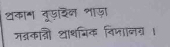 প্রকাশ বুড়াইল পাড়া
সরকারী প্রাথমিক বিদ্যালয় ।